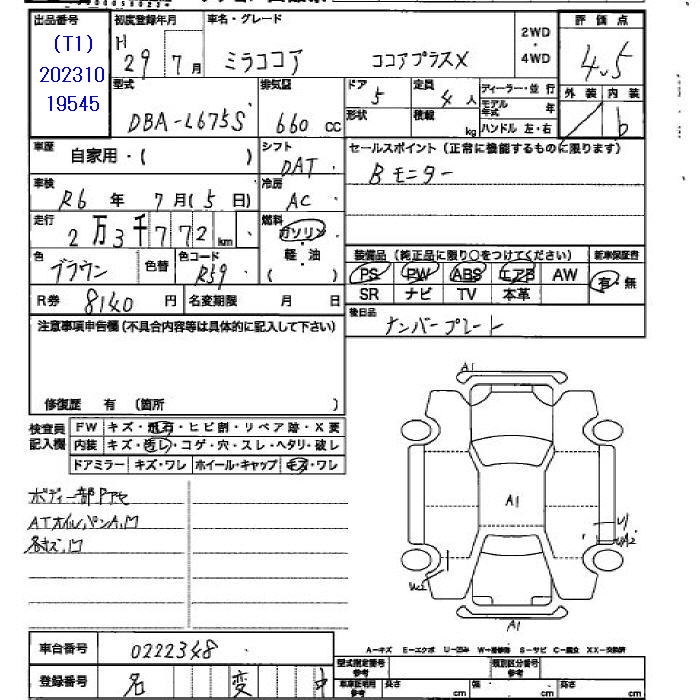 出品番号
(T1)
202310
19545
初度登録年月
H
29年7月
車名・グレード
ミラココア ココアプラスX
2WD
・
4WD
評価点
4.5
外装 内装
b
型式
DBA-L675S
排気量
660 cc
ドア
5
定員
4人
ディーラー・並行
モデル年式 年
形状
積載 kg
ハンドル 左・右
車歴
自家用・( )
シフト
DAT
セールスポイント (正常に機能するものに限ります)
Bモニター
車検
R6年7月(5日)
冷房
AC
走行
2万3千772km
燃料
ガソリン
軽・油
( )
色
ブラウン
色替
色コード
R59
装備品 (純正品に限り○をつけてください)
新車保証書
PS PW ABS エアB AW
有・無
SR ナビ TV 本革
R券 8140円
名変期限 月 日
後日品
ナンバープレート
注意事項申告欄 (不具合内容等は具体的に記入して下さい)
修復歴 有 (箇所 )
検査員
記入欄
FW キズ・飛石・ヒビ割・リペア跡・X要
内装 キズ・汚レ・コゲ・穴・スレ・ヘタリ・破レ
ドアミラー キズ・ワレ ホイール・キャップ キズ・ワレ
ボディ一部
ATオイルパン
A1
A1
A1
U1
車台番号
0222348
登録番号
名変
A-キズ E-エクボ U-凹み W-補修跡 S-サビ C-腐食 XX-交換済
型式指定番号
類別区分番号
車庫証明用参考
長さ cm
幅 cm
高さ cm